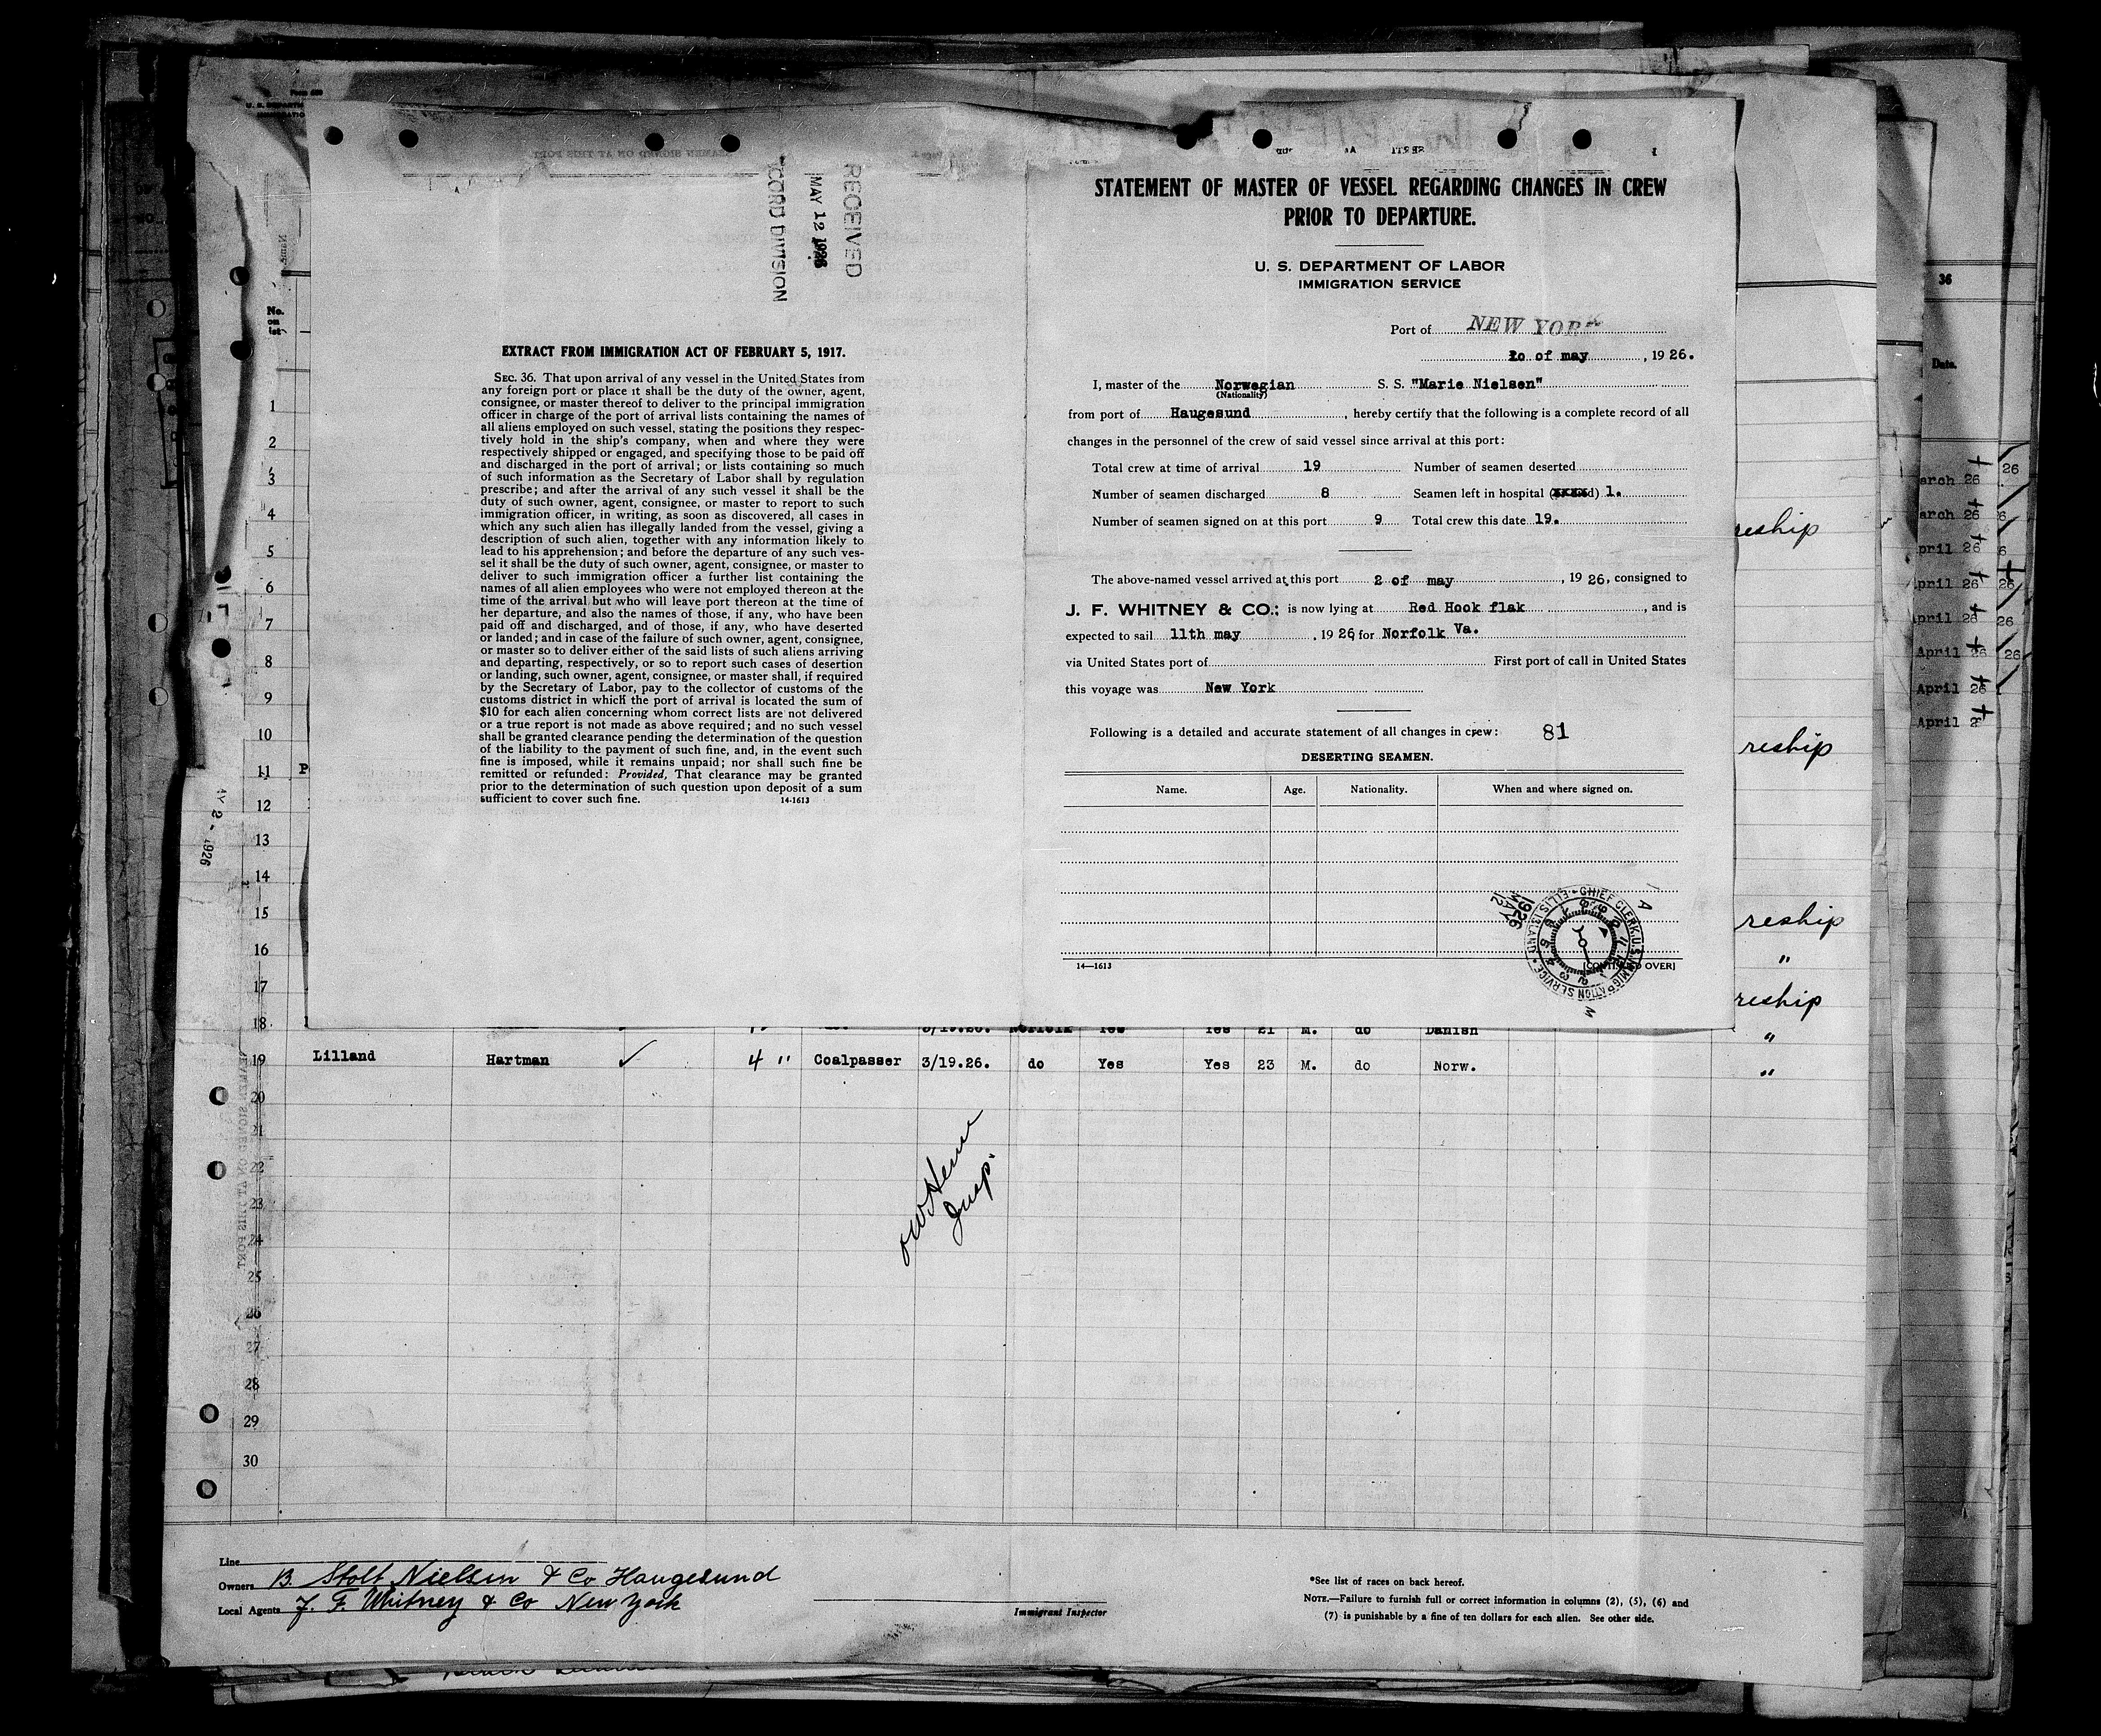 RECEIVED
MAY 12 1926
CORD DIVISION
EXTRACT FROM IMMIGRATION ACT OF FEBRUARY 5, 1917.
SEC. 36. That upon arrival of any vessel in the United States from
any foreign port or place it shall be the duty of the owner, agent,
consignee, or master thereof to deliver to the principal immigration
officer in charge of the port of arrival lists containing the names of
all aliens employed on such vessel, stating the positions they respec-
tively hold in the ship's company, when and where they were
respectively shipped or engaged, and specifying those to be paid off
and discharged in the port of arrival; or lists containing so much
of such information as the Secretary of Labor shall by regulation
prescribe; and after the arrival of any such vessel it shall be the
duty of such owner, agent, consignee, or master to report to such
immigration officer, in writing, as soon as discovered, all cases in
which any such alien has illegally landed from the vessel, giving a
description of such alien, together with any information likely to
lead to his apprehension; and before the departure of any such ves-
sel it shall be the duty of such owner, agent, consignee, or master to
deliver to such immigration officer a further list containing the
names of all alien employees who were not employed thereon at the
time of the arrival but who will leave port thereon at the time of
her departure, and also the names of those, if any, who have been
paid off and discharged, and of those, if any, who have deserted
or landed; and in case of the failure of such owner, agent, consignee,
or master so to deliver either of the said lists of such aliens arriving
and departing, respectively, or so to report such cases of desertion
or landing, such owner, agent, consignee, or master shall, if required
by the Secretary of Labor, pay to the collector of customs of the
customs district in which the port of arrival is located the sum of
$10 for each alien concerning whom correct lists are not delivered
or a true report is not made as above required; and no such vessel
shall be granted clearance pending the determination of the question
of the liability to the payment of such fine, and, in the event such
fine is imposed, while it remains unpaid; nor shall such fine be
remitted or refunded: Provided, That clearance may be granted
prior to the determination of such question upon deposit of a sum
sufficient to cover such fine. 14-1613
STATEMENT OF MASTER OF VESSEL REGARDING CHANGES IN CREW
PRIOR TO DEPARTURE.
U. S. DEPARTMENT OF LABOR
IMMIGRATION SERVICE
Port of NEW YORK
10 of may, 1926.
I, master of the Norwegian S. S. "Marie Nielsen"
(Nationality)
from port of Haugesund, hereby certify that the following is a complete record of all
changes in the personnel of the crew of said vessel since arrival at this port:
Total crew at time of arrival 19 Number of seamen deserted
Number of seamen discharged 8 Seamen left in hospital (xxxxd) 1.
Number of seamen signed on at this port 9 Total crew this date 19.
The above-named vessel arrived at this port 2 of may, 1926, consigned to
J. F. WHITNEY & CO.; is now lying at Red Hook flak, and is
expected to sail 11th may, 1926, for Norfolk Va.
via United States port of First port of call in United States
this voyage was New York
Following is a detailed and accurate statement of all changes in crew: 81
DESERTING SEAMEN.
Name. Age. Nationality. When and where signed on.
14—1613 OVER]
CHIEF CLERK, U.S. IMMIGRATION SERVICE ELLIS ISLAND
1926
MAY
12
No.
on
list
1
2
3
4
5
6
7
8
9
10
11 P
12
13
14
15
16
17
18 3/19.26. Norfolk Yes Yes 21 M. do Danish "
19 Lilland Hartman ✓ 4 " Coalpasser 3/19.26. do Yes Yes 23 M. do Norw. "
20
21
22
23
24
25
26
27
28
29
30
Insp.
AY 2 - 1926
reship
reship
reship
"
reship
36
Date.
arch 26
arch 26
pril 26
pril 26
pril 26
April 26
April 26
April 2
Line
Owners B. Stolt Nielsen & Co Haugesund
Local Agents J. F. Whitney & Co New York
Immigrant Inspector
*See list of races on back hereof.
NOTE.—Failure to furnish full or correct information in columns (2), (5), (6) and
(7) is punishable by a fine of ten dollars for each alien. See other side.